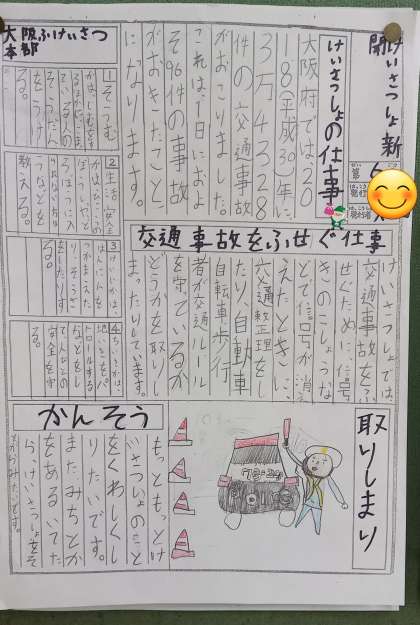 けいさつしょ新聞
けいさつしょの仕事
大阪府では20
18(平成30)年に、
3万4328
件の交通事故
がおこりました。
これは1日におよ
そ96件の事故
がおきたこと
になります。
大阪ふけいさつ
本部
1そうむ
る。
2生活安全
教える。
3けいじかは、
はんにんを
つかまえた
り、そうさ
をしたりす
る。
4ちいきかは、
地いきをパ
トロールする
などをし
安全を守
る。
交通事故をふせぐ仕事
けいさつしょでは、
交通事故をふ
せぐために、信号
きのこしょうな
どで信号が消
えたときに、
交通整理をし
たり、自動車
自転車歩行
者が交通ルール
を守っているか
どうかを取りし
まったりしています。
取りしまり
かんそう
もっともっとけ
いさつしょのこと
をくわしくし
りたいです。
またみちとか
をあるいてた
ら、けいさつしょをそ
とからみたいです。